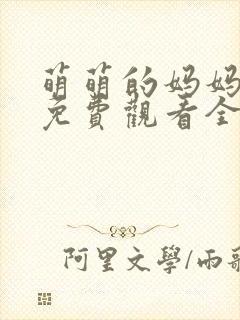 萌萌的妈妈
免費觀看全
阿里文學/雨歌